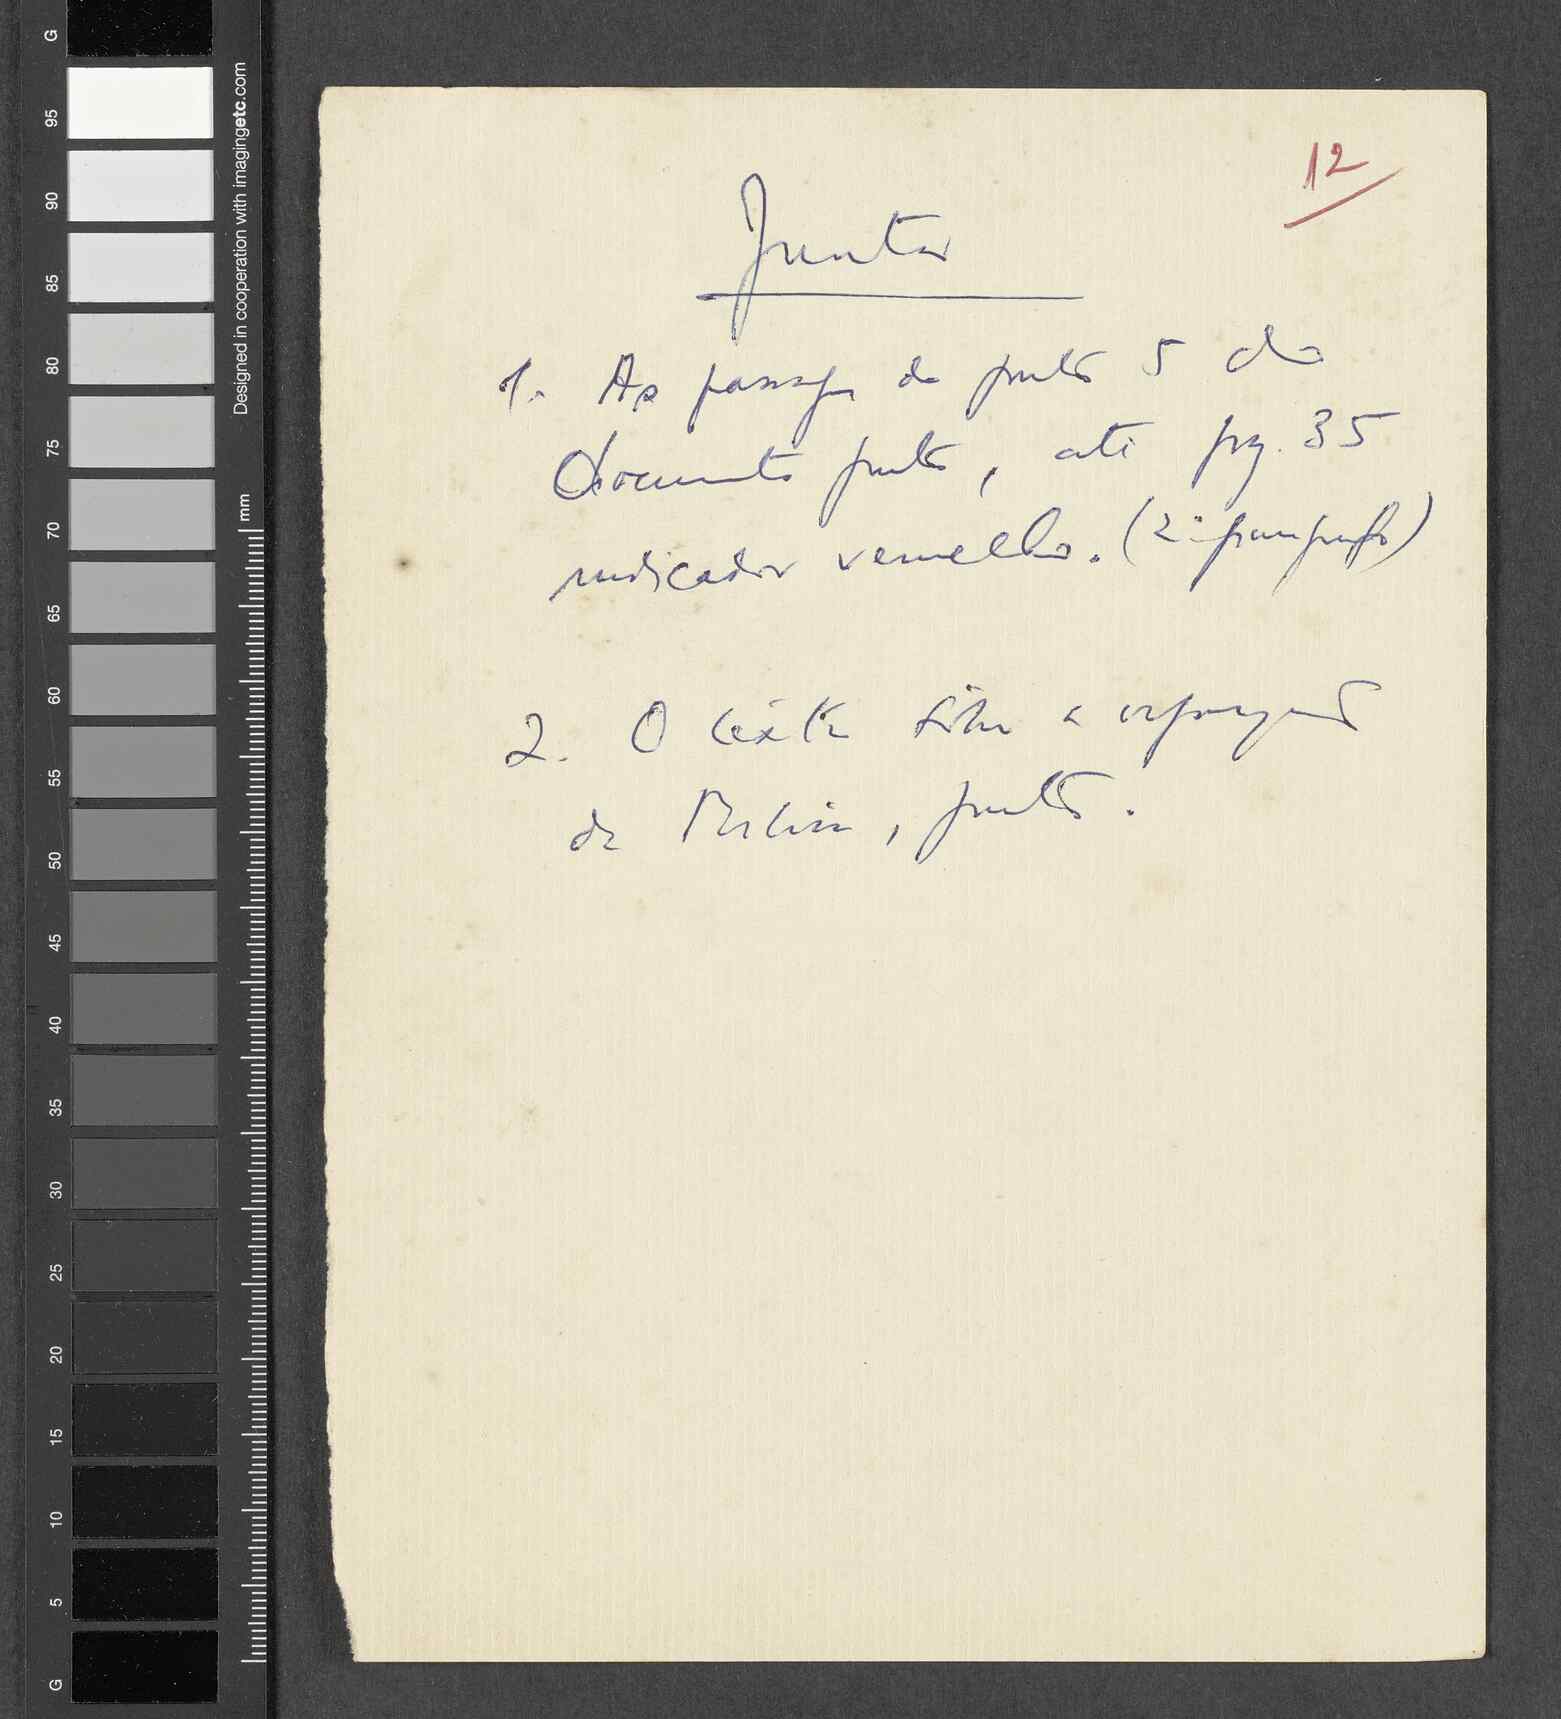 12
Juntar
1. As passagens do ponto 5 do
documento junto, até pág. 35
indicador vermelho. (2º parágrafo)
2. O texto sobre a
de , junto.
G
95
90
85
80
75
70
65
60
55
50
45
40
35
30
25
20
15
10
5
G
Designed in cooperation with imagingetc.com
mm